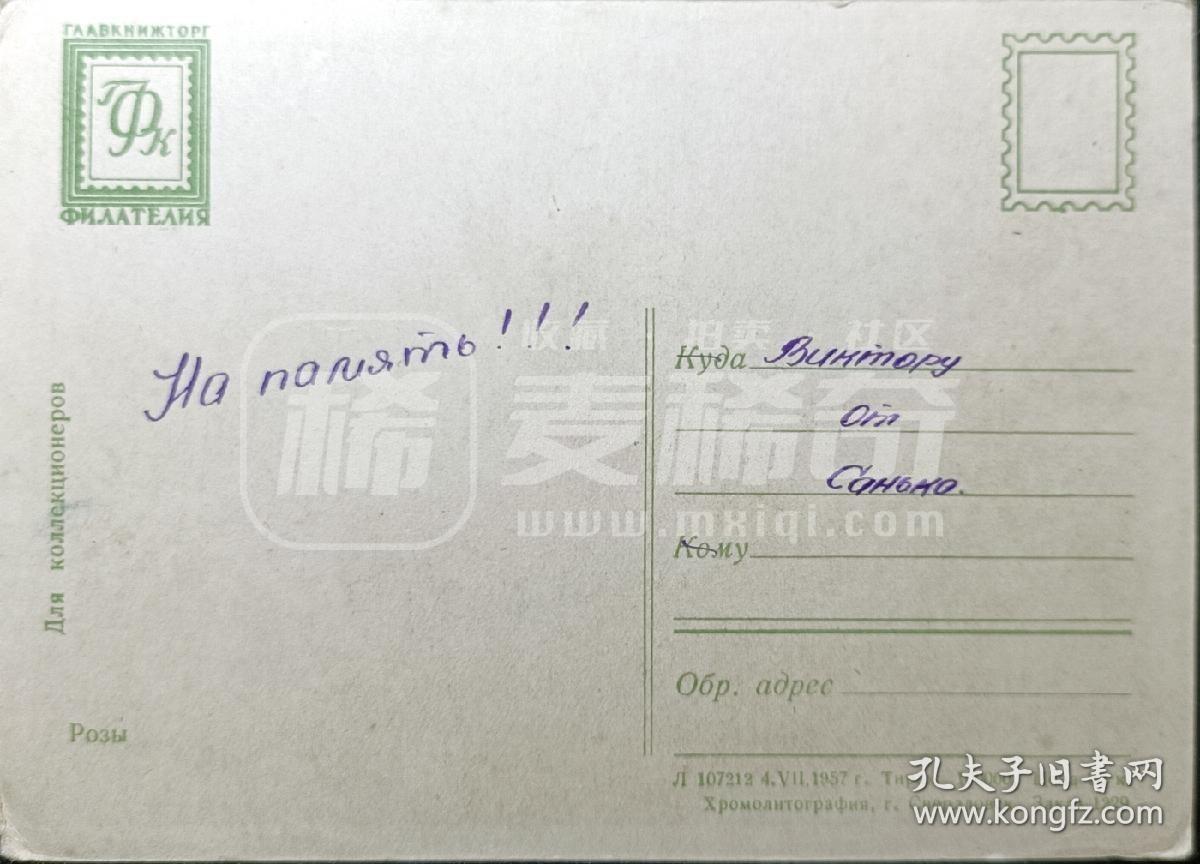 ГЛАВКНИЖТОРГ
ГФК
ФИЛАТЕЛИЯ
На память!!!
Для коллекционеров
Розы
Куда Виктору
от
Санька.
Кому
Обр. адрес
Л 107212 4.VII.1957 г.
Хромолитография, г.
收藏 拍卖 社区
稀 麦稀奇
www.mxiqi.com
孔夫子旧书网
www.kongfz.com